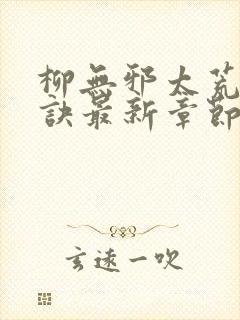 柳無邪太荒
訣最新章節
玄遠一吹